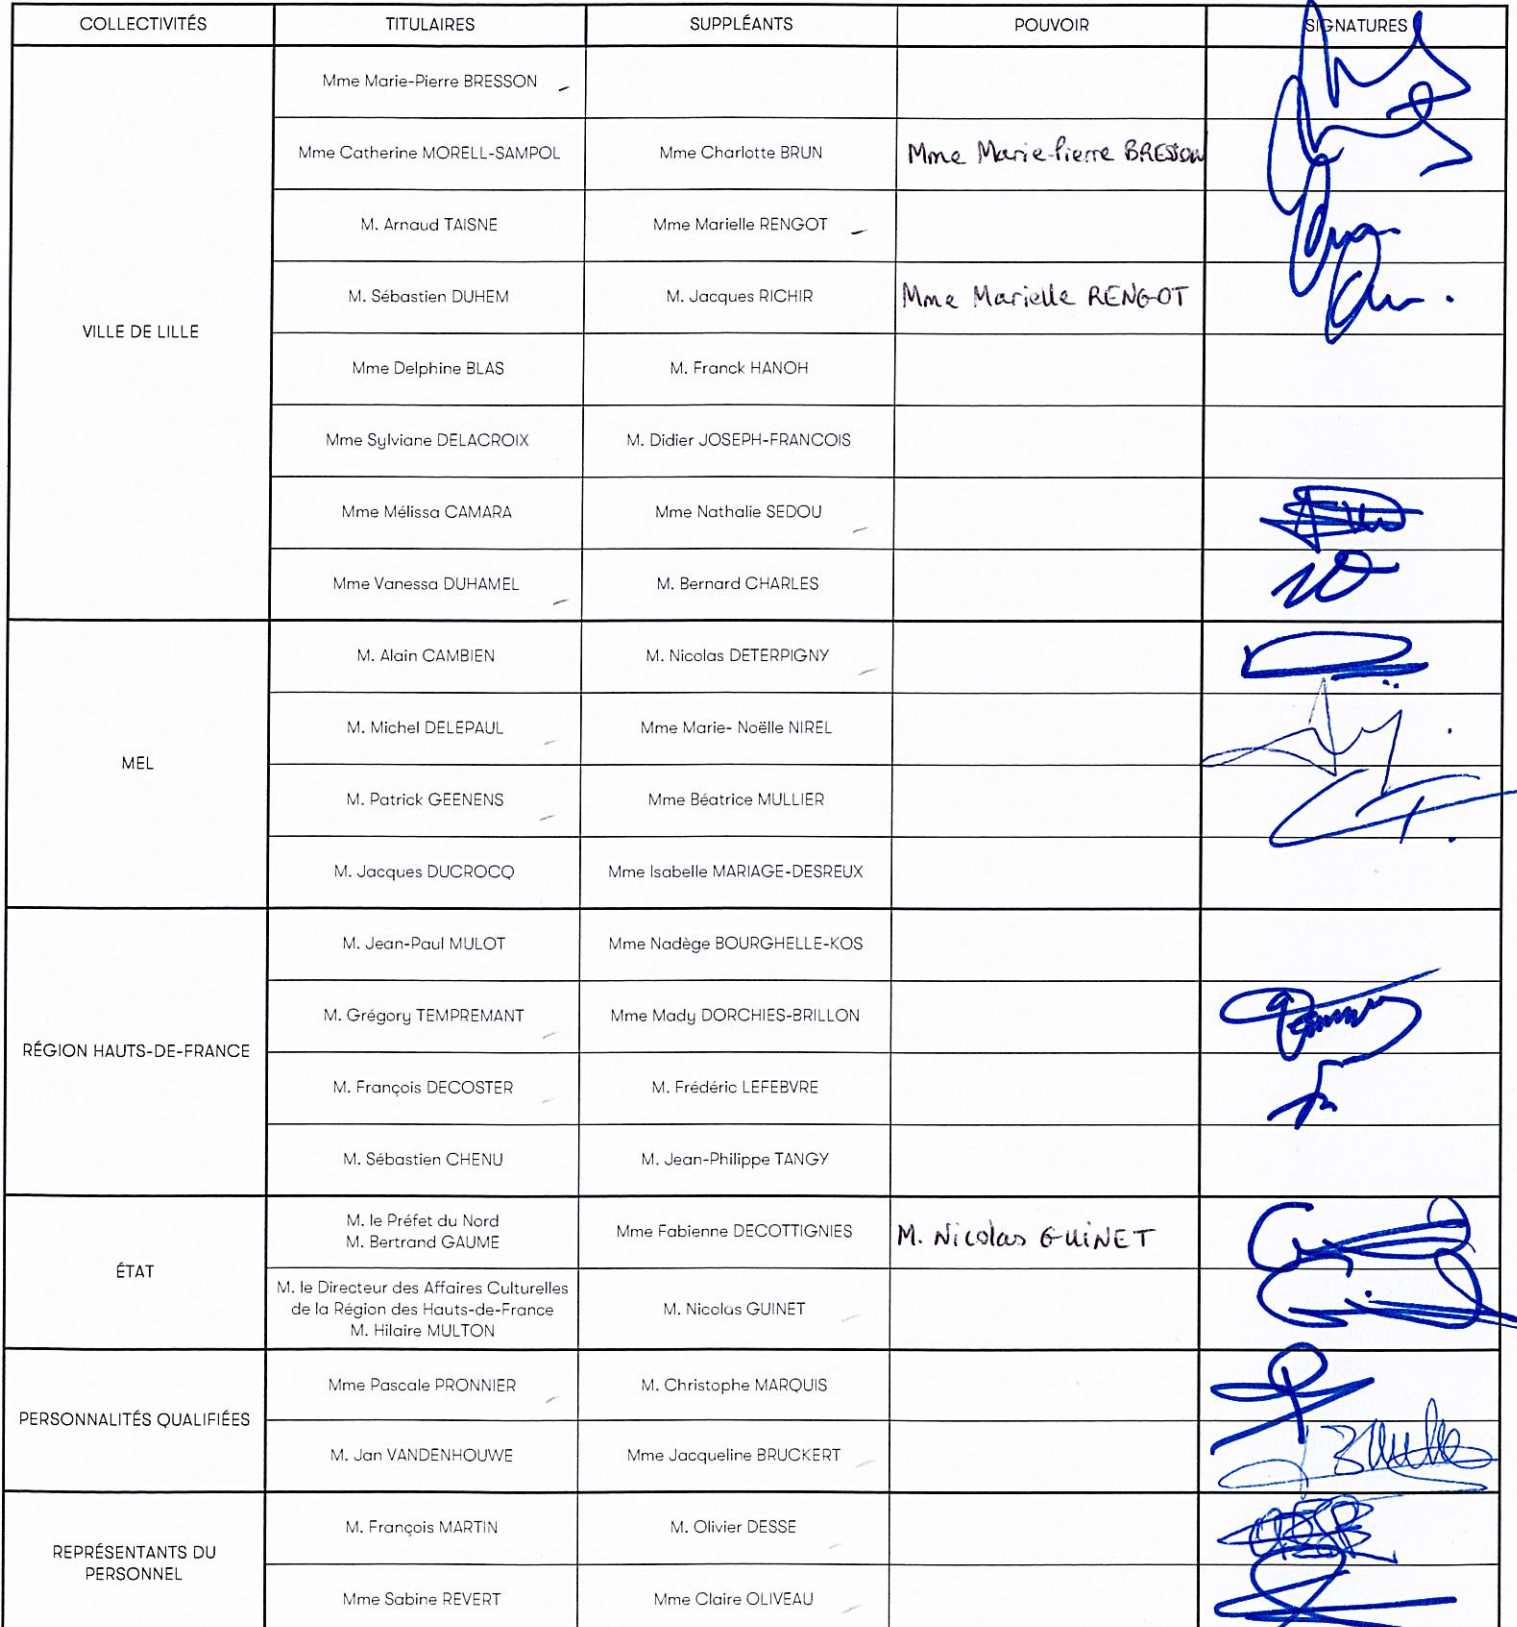 COLLECTIVITÉS TITULAIRES SUPPLÉANTS POUVOIR SIGNATURES
Mme Marie-Pierre BRESSON
Mme Catherine MORELL-SAMPOL Mme Charlotte BRUN Mme Marie-Pierre BRESSON
M. Arnaud TAISNE Mme Marielle RENGOT
M. Sébastien DUHEM M. Jacques RICHIR Mme Marielle RENGOT
VILLE DE LILLE
Mme Delphine BLAS M. Franck HANOH
Mme Sylviane DELACROIX M. Didier JOSEPH-FRANCOIS
Mme Mélissa CAMARA Mme Nathalie SEDOU
Mme Vanessa DUHAMEL M. Bernard CHARLES
M. Alain CAMBIEN M. Nicolas DETERPIGNY
M. Michel DELEPAUL Mme Marie- Noëlle NIREL
MEL
M. Patrick GEENENS Mme Béatrice MULLIER
M. Jacques DUCROCQ Mme Isabelle MARIAGE-DESREUX
M. Jean-Paul MULOT Mme Nadège BOURGHELLE-KOS
M. Grégory TEMPREMANT Mme Mady DORCHIES-BRILLON
RÉGION HAUTS-DE-FRANCE
M. François DECOSTER M. Frédéric LEFEBVRE
M. Sébastien CHENU M. Jean-Philippe TANGY
M. le Préfet du Nord
M. Bertrand GAUME Mme Fabienne DECOTTIGNIES M. Nicolas GUINET
ÉTAT
M. le Directeur des Affaires Culturelles
de la Région des Hauts-de-France
M. Hilaire MULTON M. Nicolas GUINET
Mme Pascale PRONNIER M. Christophe MARQUIS
PERSONNALITÉS QUALIFIÉES
M. Jan VANDENHOUWE Mme Jacqueline BRUCKERT
M. François MARTIN M. Olivier DESSE
REPRÉSENTANTS DU
PERSONNEL
Mme Sabine REVERT Mme Claire OLIVEAU